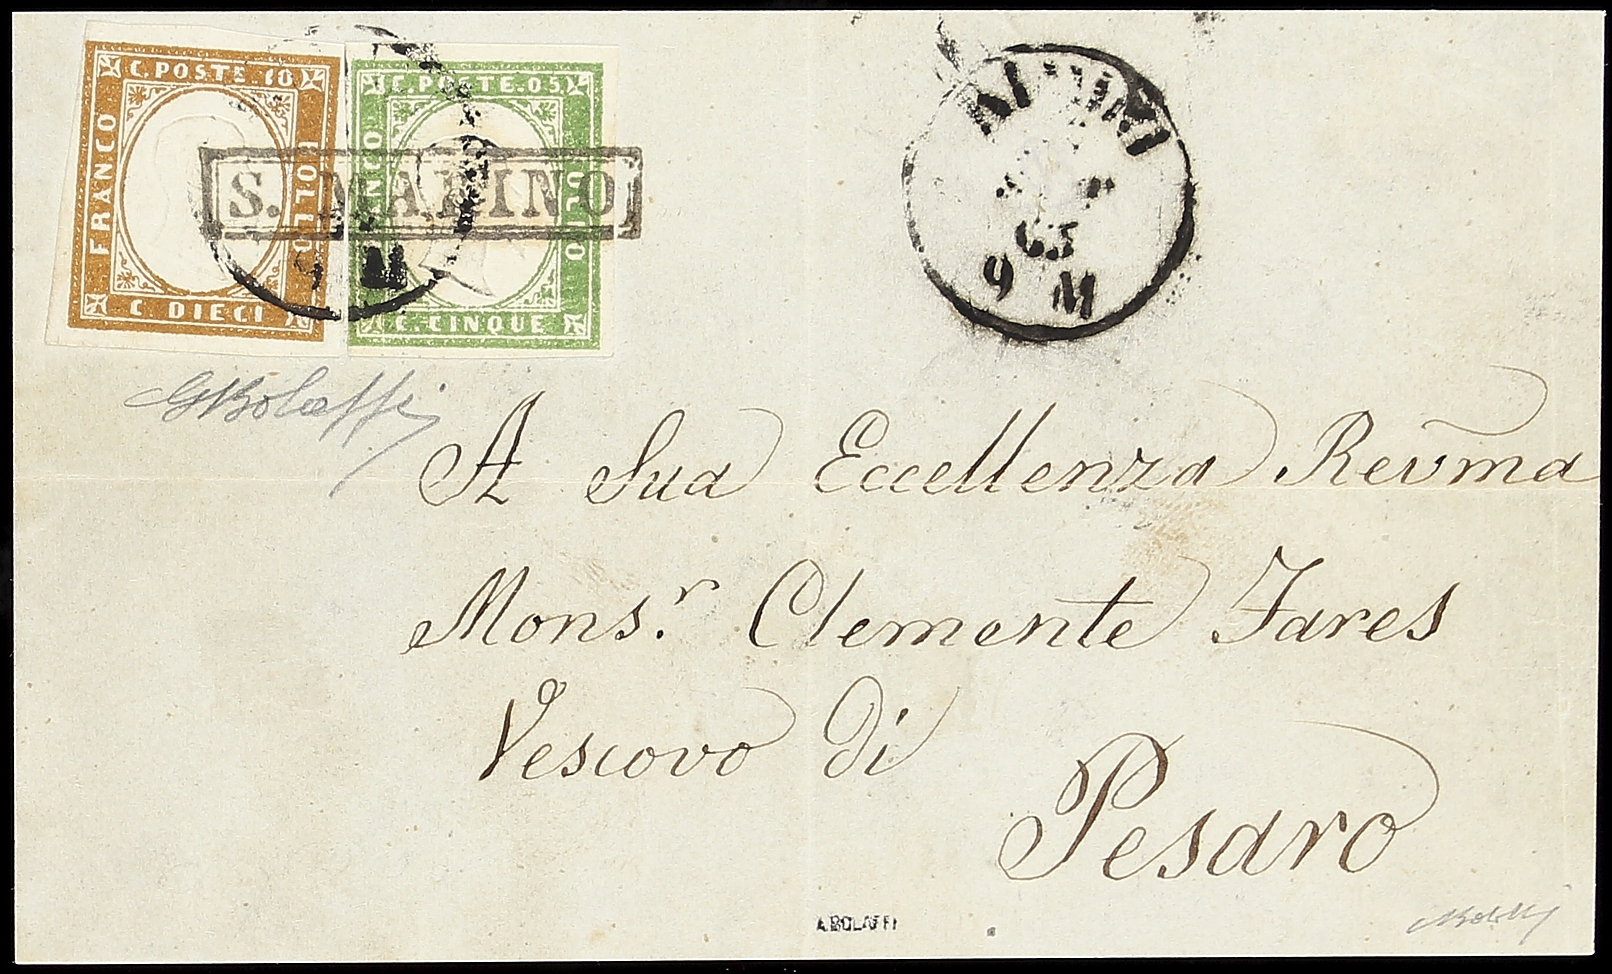 C. POSTE. 10
FRANCO
BOLLO
C. DIECI
C. POSTE. 05
FRANCO
BOLLO
C. CINQUE
S. MARINO
9 M
RIMINI
63
9 M
GBolaffi
A Sua Eccellenza Revma
Mons.r Clemente Fares
Vescovo di
Pesaro
A.BOLAFFI